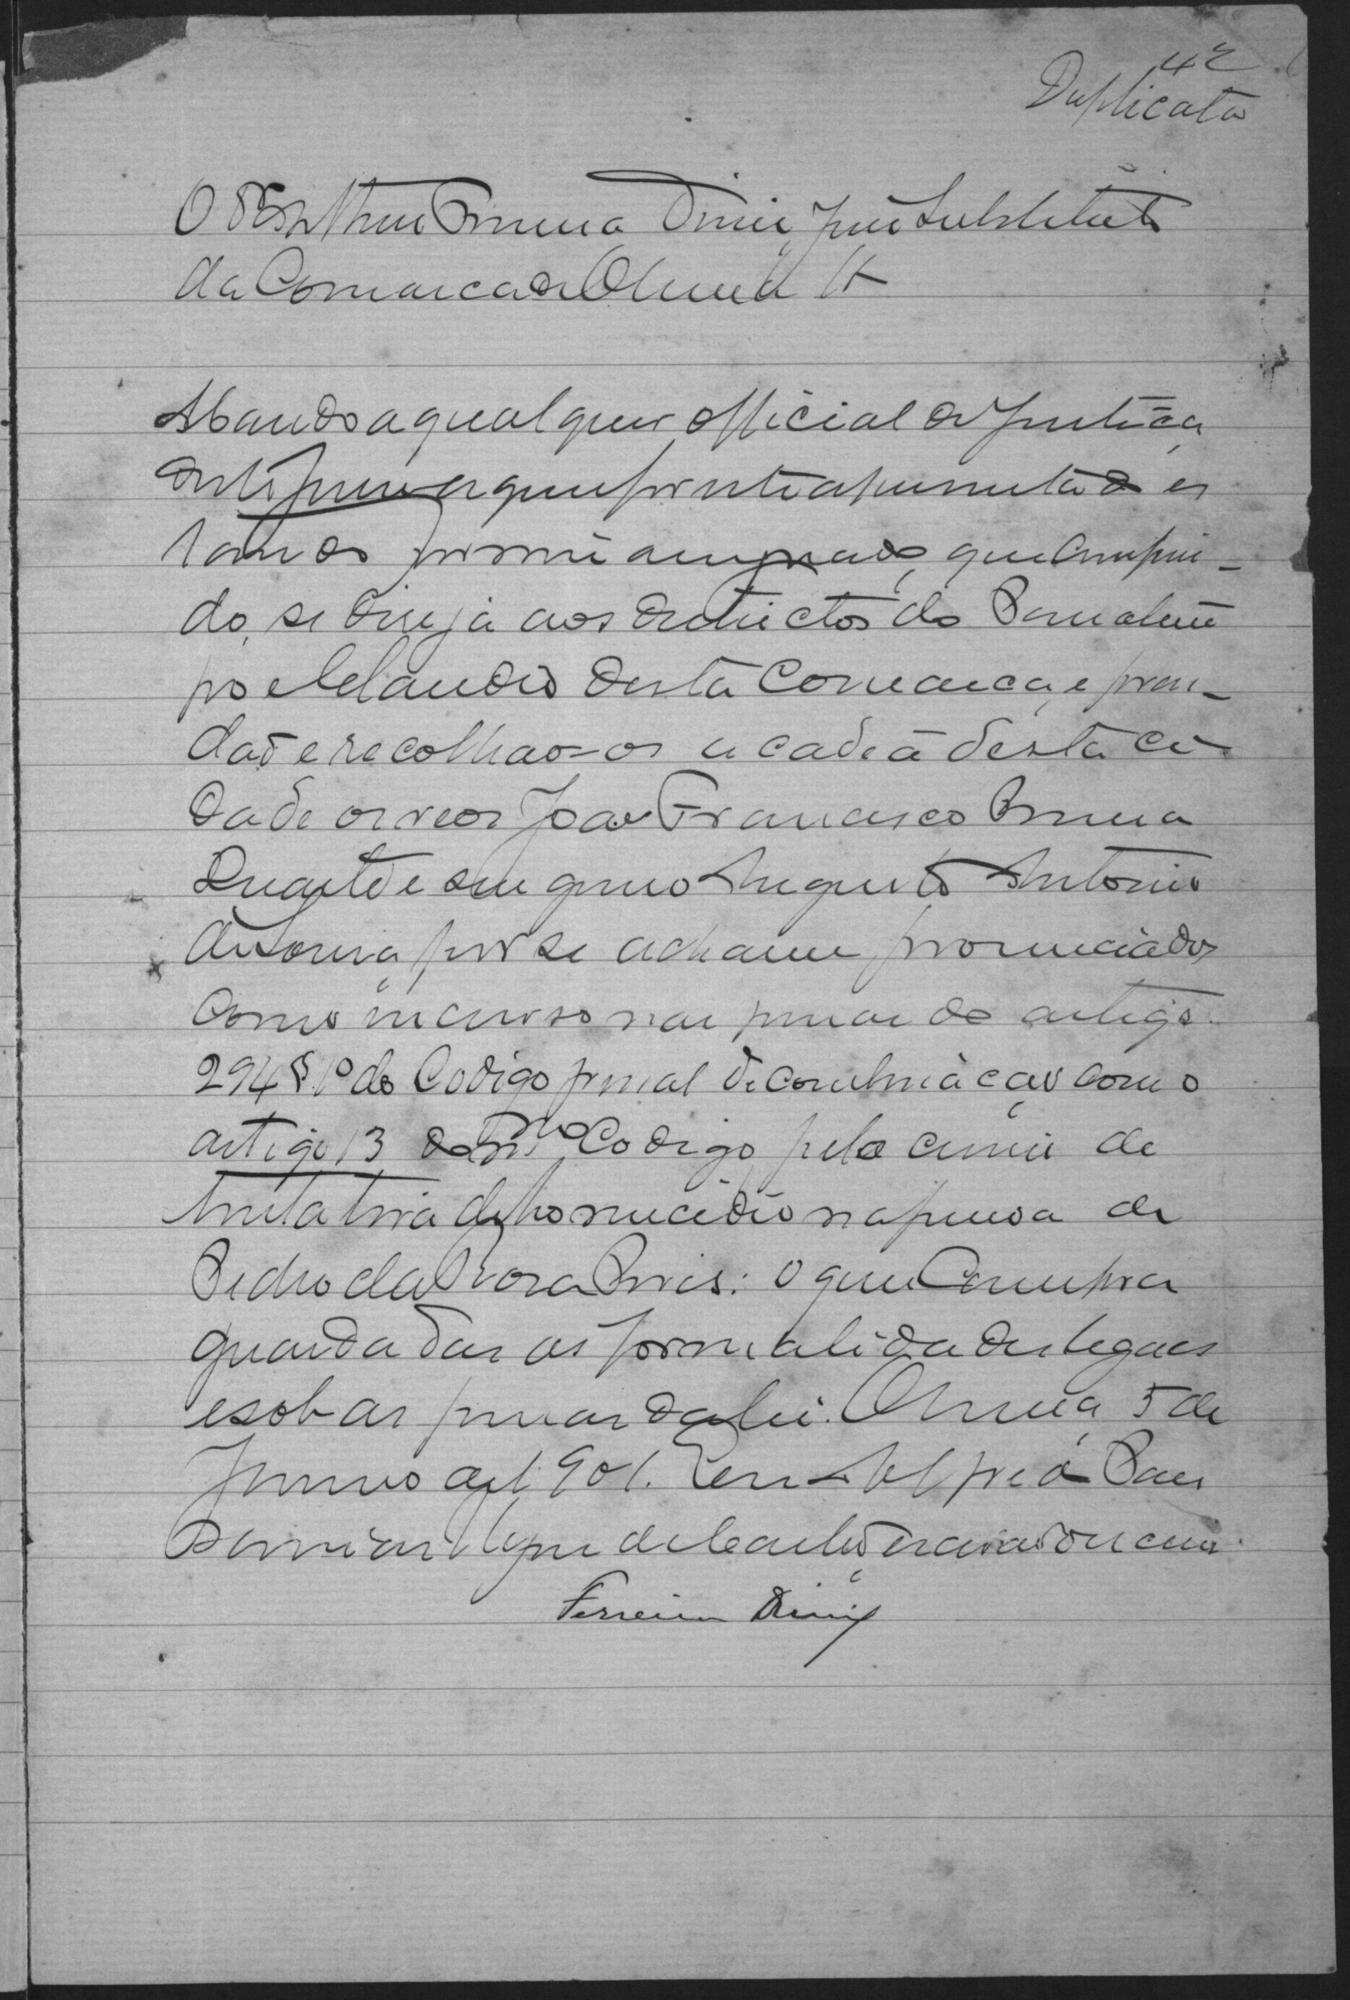 42
Duplicata
O Dr Arthur Ferreira Diniz, juiz substituto
da Comarca de Oliveira &
Mando a qualquer official de justiça
deste juizo a quem for este apresentado es
tando por mim assignado, que cumprin-
do, se dirija aos districtos do
po e Claudio desta Comarca, e pren-
dao e recolhao-os a cadea desta ci-
dade os reos Joao Francisco Ferreira
Duarte e seu genro Augusto Antonio
de Souza, por se acharem pronunciados
como incurso nas penas do artigo
294 § 1º do Codigo penal de combinação com o
artigo 13 do mmo Codigo, pelo crime de
tentativa de homicidio na pessoa de
Pedro da Rosa Pires: o que cumpra
guardadas as formalidades legaes
e sob as penas da lei. Oliveira, 5 de
Junho de 1.901. Eu
de Castro escrivao escrevi.
Ferreira Diniz